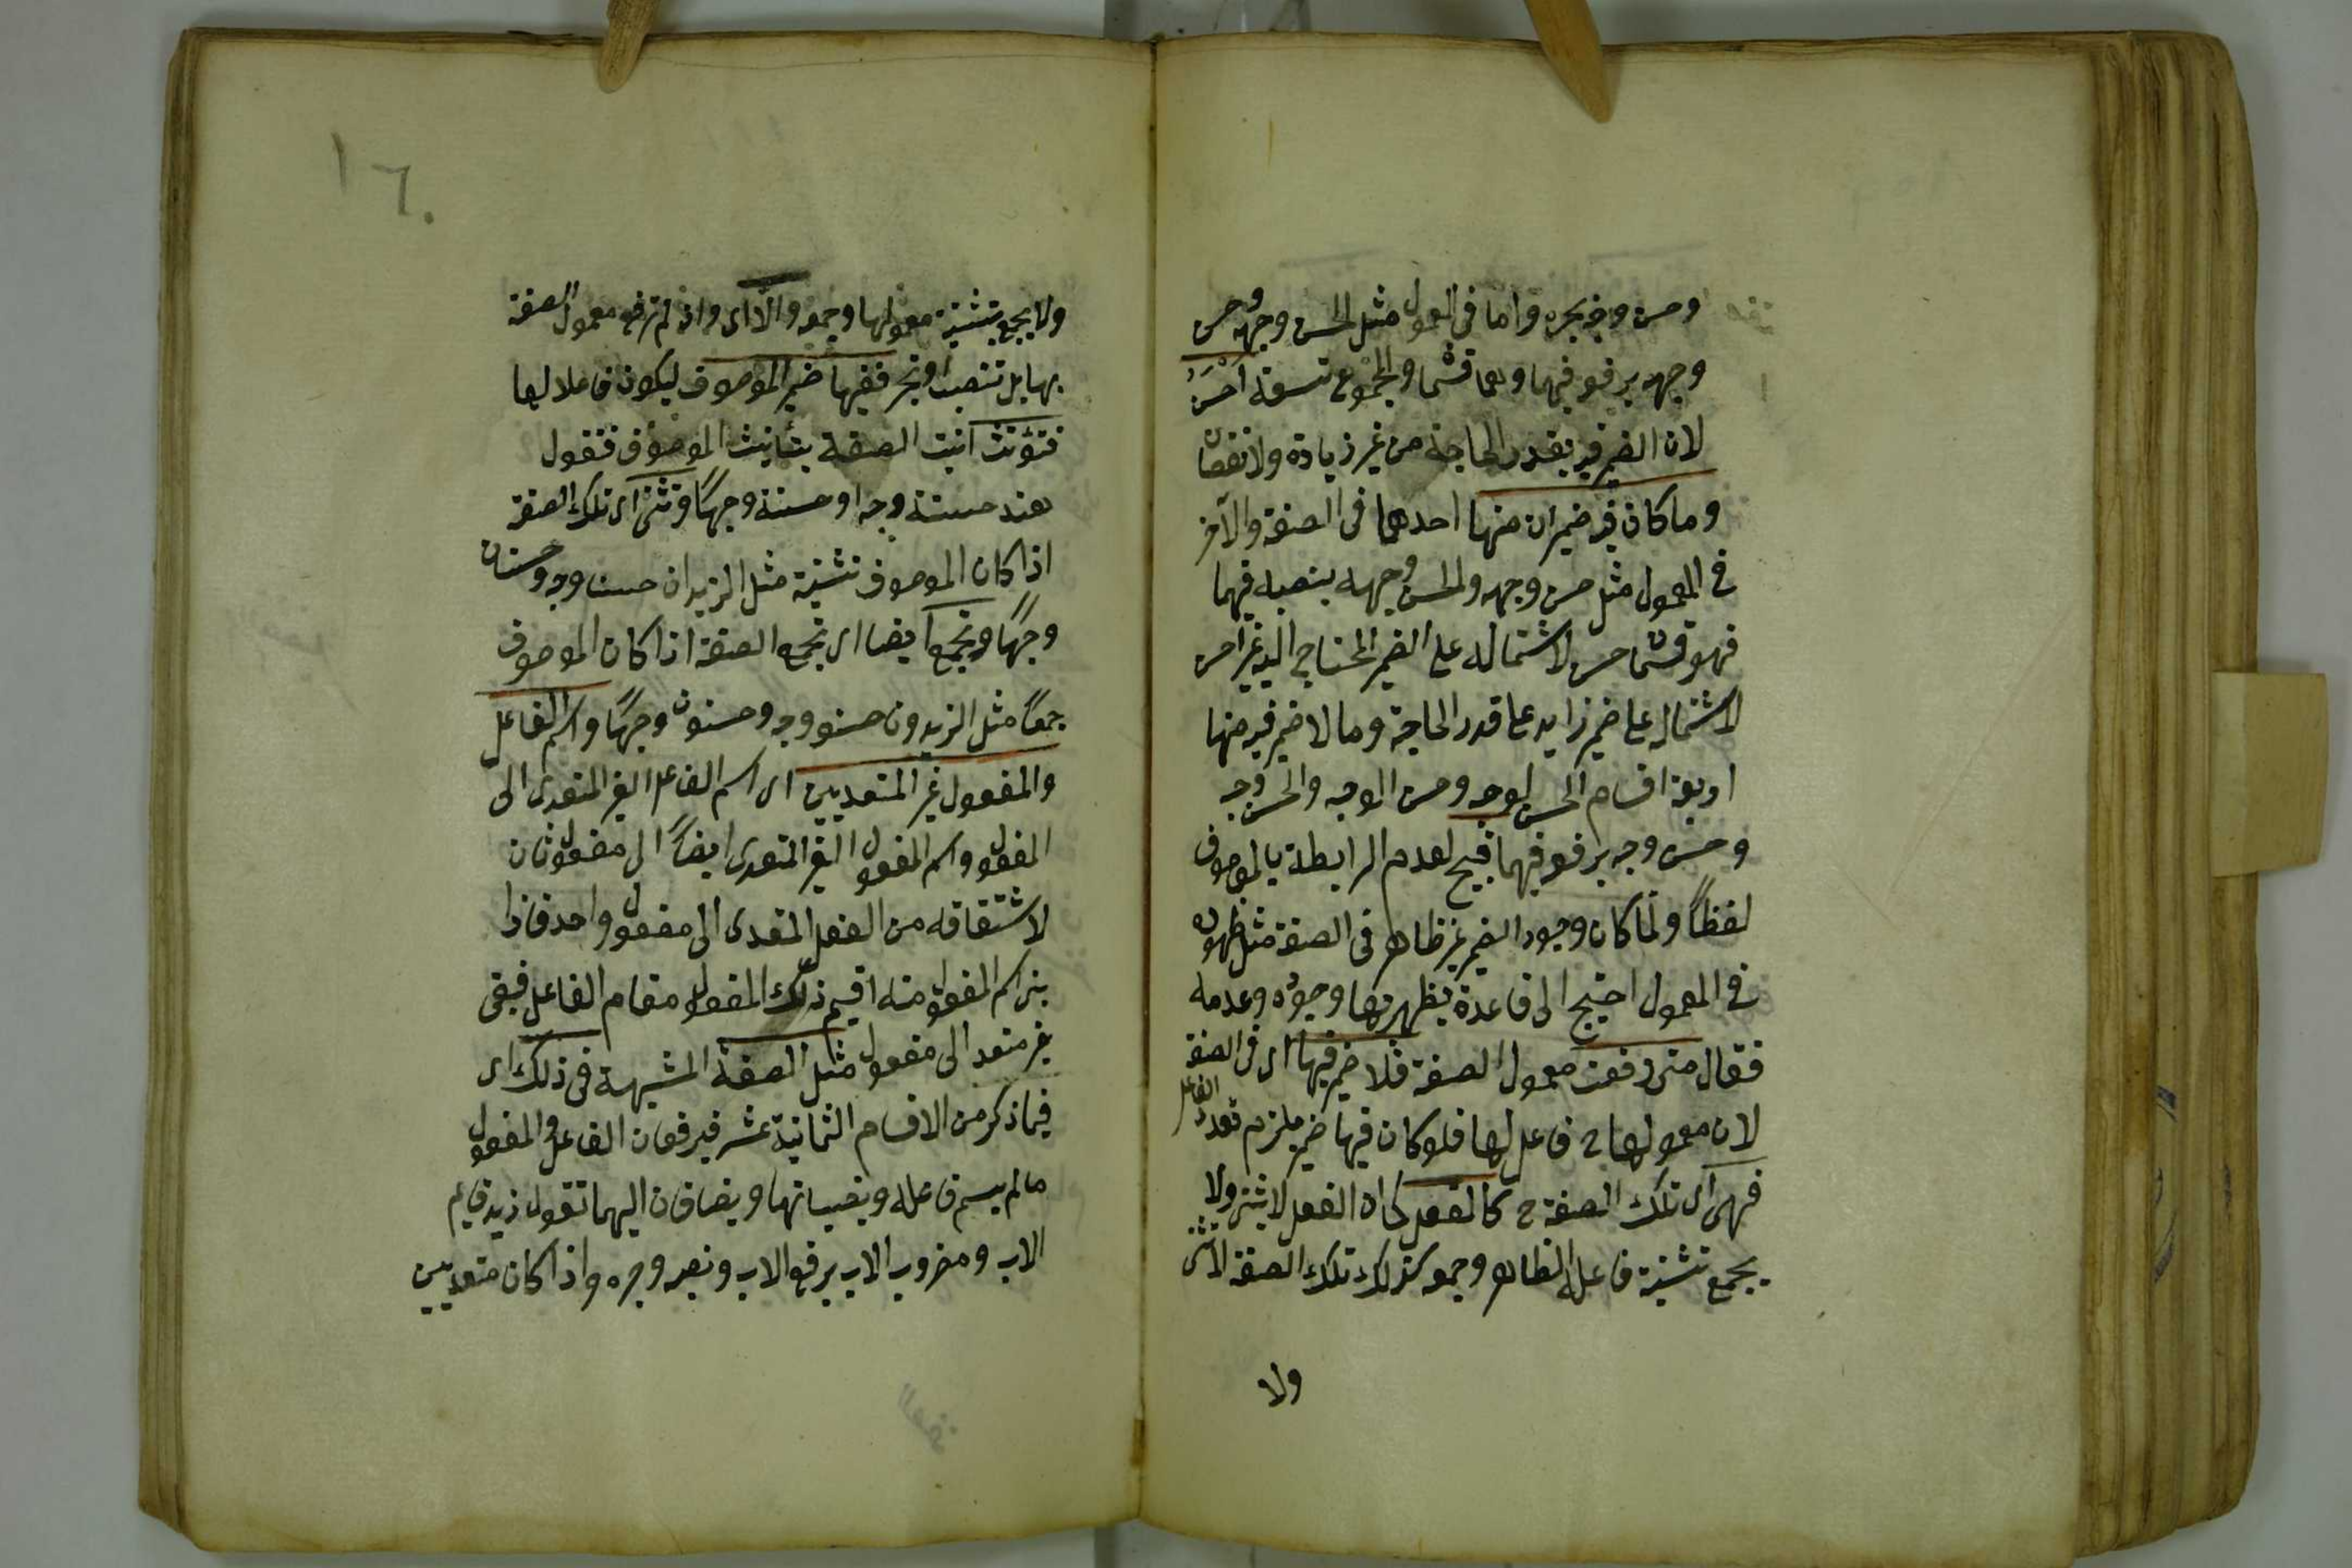 وحسن وجه بجره واما فى المعمول مثل الحسن وجهه وحسن
وجهه برفعه فيهما وهما قسمان والمجموع تسعة احسن
لان الضمير فيه بقدر الحاجة من غير زيادة ولا نقصان
وما كان فيه ضميران منها احدهما فى الصفة والآخر
فى المعمول مثل حسن وجهه والحسن وجهه بنصبه فيهما
فهو قسمان حسن لاشتماله على الضمير المحتاج اليه غير احسن
لاشتماله على ضمير زايد على قدر الحاجة وما لا ضمير فيه منها
اربعة اقسام الحسن الوجه وحسن الوجه والحسن وجه
وحسن وجه برفعه فيهما قبيح لعدم الرابطة بالموصوف
لفظاً ولما كان وجود الضمير غير ظاهر فى الصفة مثل ظهوره
فى المعمول احتيج الى قاعدة يظهر بها وجوده وعدمه
فقال متى رفعت معمول الصفة فلا ضمير فيها اى فى الصفة
لان معمولها ح فاعل لها فلو كان فيها ضمير يلزم تعدد الفاعل
فهى اى تلك الصفة ح كالفعل كما ان الفعل لا يثنى ولا
يجمع بتثنية فاعله الظاهر وجمعه كذلك تلك الصفة لا تثنى
ولا
١٦٠
ولا يجمع بتثنية معمولها وجمعه والا اى وان لم ترفع معمول الصفة
بها بل تنصب او تجر ففيها ضمير الموصوف ليكون فاعلا لها
فتؤنث انت الصفة بتأنيث الموصوف فتقول
هند حسنة وجه او حسنة وجهاً وتثنى اى تلك الصفة
اذا كان الموصوف تثنية مثل الزيدان حسنا وجه وحسنان
وجهاً وتجمع ايضا اى تجمع الصفة اذا كان الموصوف
جمعاً مثل الزيدون حسنو وجه وحسنون وجهاً واسم الفاعل
والمفعول غير المتعديين اى اسم الفاعل الغير المتعدى الى
المفعول واسم المفعول الغير المتعدى ايضاً الى مفعول ثان
لاشتقاقه من الفعل المتعدى الى مفعول واحد فاذا
بنى اسم المفعول منه اقيم ذلك المفعول مقام الفاعل فبقى
غير متعد الى مفعول مثل الصفة المشبهة فى ذلك اى
فيما ذكر من الاقسام الثمانية عشر فيرفعان الفاعل والمفعول
ما لم يسم فاعله وينصبانها ويضافان اليهما تقول زيد قايم
الاب ومضروب الاب برفع الاب ونصبه وجره واذا كان متعديين